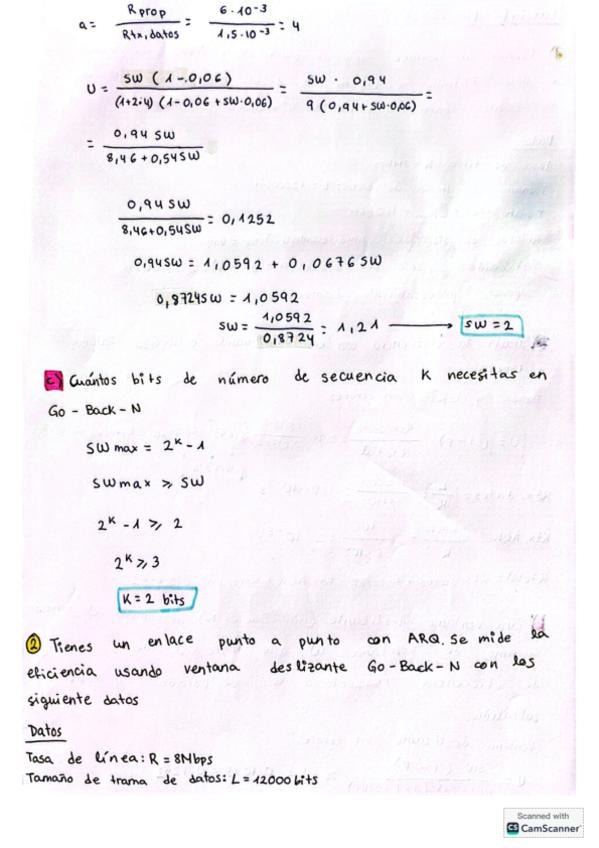 a = Rprop / Rtx,datos = 6·10⁻³ / 1,5·10⁻³ = 4
U = SW (1-0,06) / (1+2·4) (1-0,06 + SW·0,06) = SW · 0,94 / 9 (0,94 + SW·0,06) =
= 0,94 SW / 8,46 + 0,54 SW
0,94 SW / 8,46+0,54SW = 0,1252
0,94SW = 1,0592 + 0,0676 SW
0,8724SW = 1,0592
SW = 1,0592 / 0,8724 = 1,21 ⟶ SW = 2
c) Cuántos bits de número de secuencia K necesitas en
Go - Back - N
SW max = 2ᴷ - 1
SW max ⩾ SW
2ᴷ - 1 ⩾ 2
2ᴷ ⩾ 3
K = 2 bits
② Tienes un enlace punto a punto con ARQ. Se mide la
eficiencia usando ventana deslizante Go-Back-N con los
siguiente datos
Datos
Tasa de línea: R = 8Mbps
Tamaño de trama de datos: L = 12000 bits
Scanned with
CS CamScanner